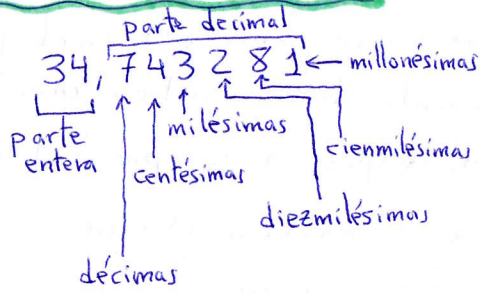 parte decimal
34,743281 ← millonésimas
parte
entera
milésimas
centésimas
cienmilésimas
diezmilésimas
décimas